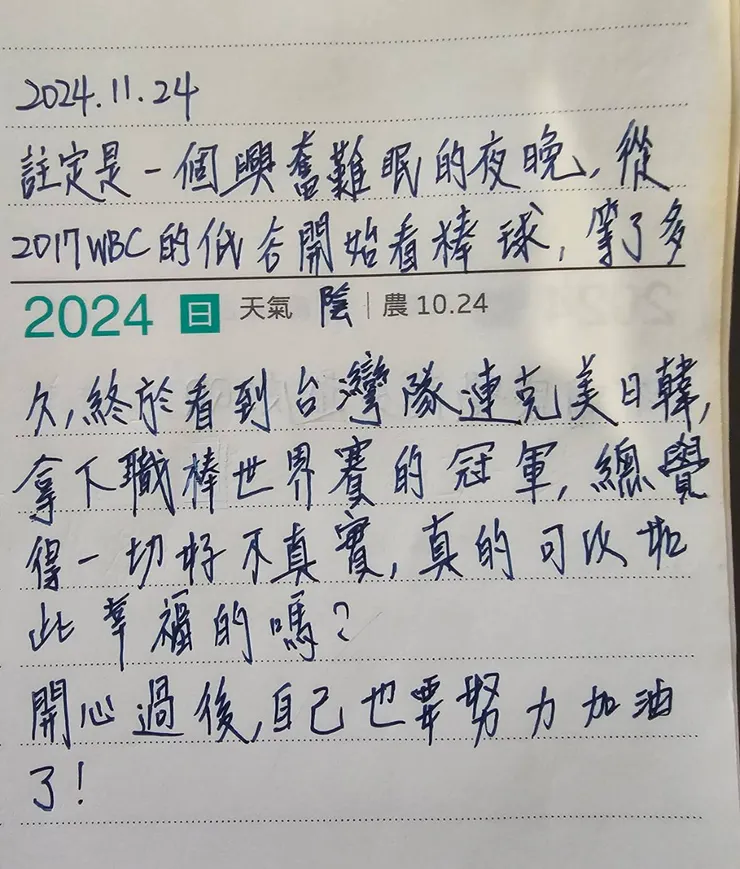 2024.11.24
註定是一個興奮難眠的夜晚，從
2017WBC的低谷開始看棒球，等了多
2024 日 天氣 陰 | 農 10.24
久，終於看到台灣隊連克美日韓，
拿下職棒世界賽的冠軍，總覺
得一切好不真實，真的可以如
此幸福的嗎？
開心過後，自己也要努力加油
了！